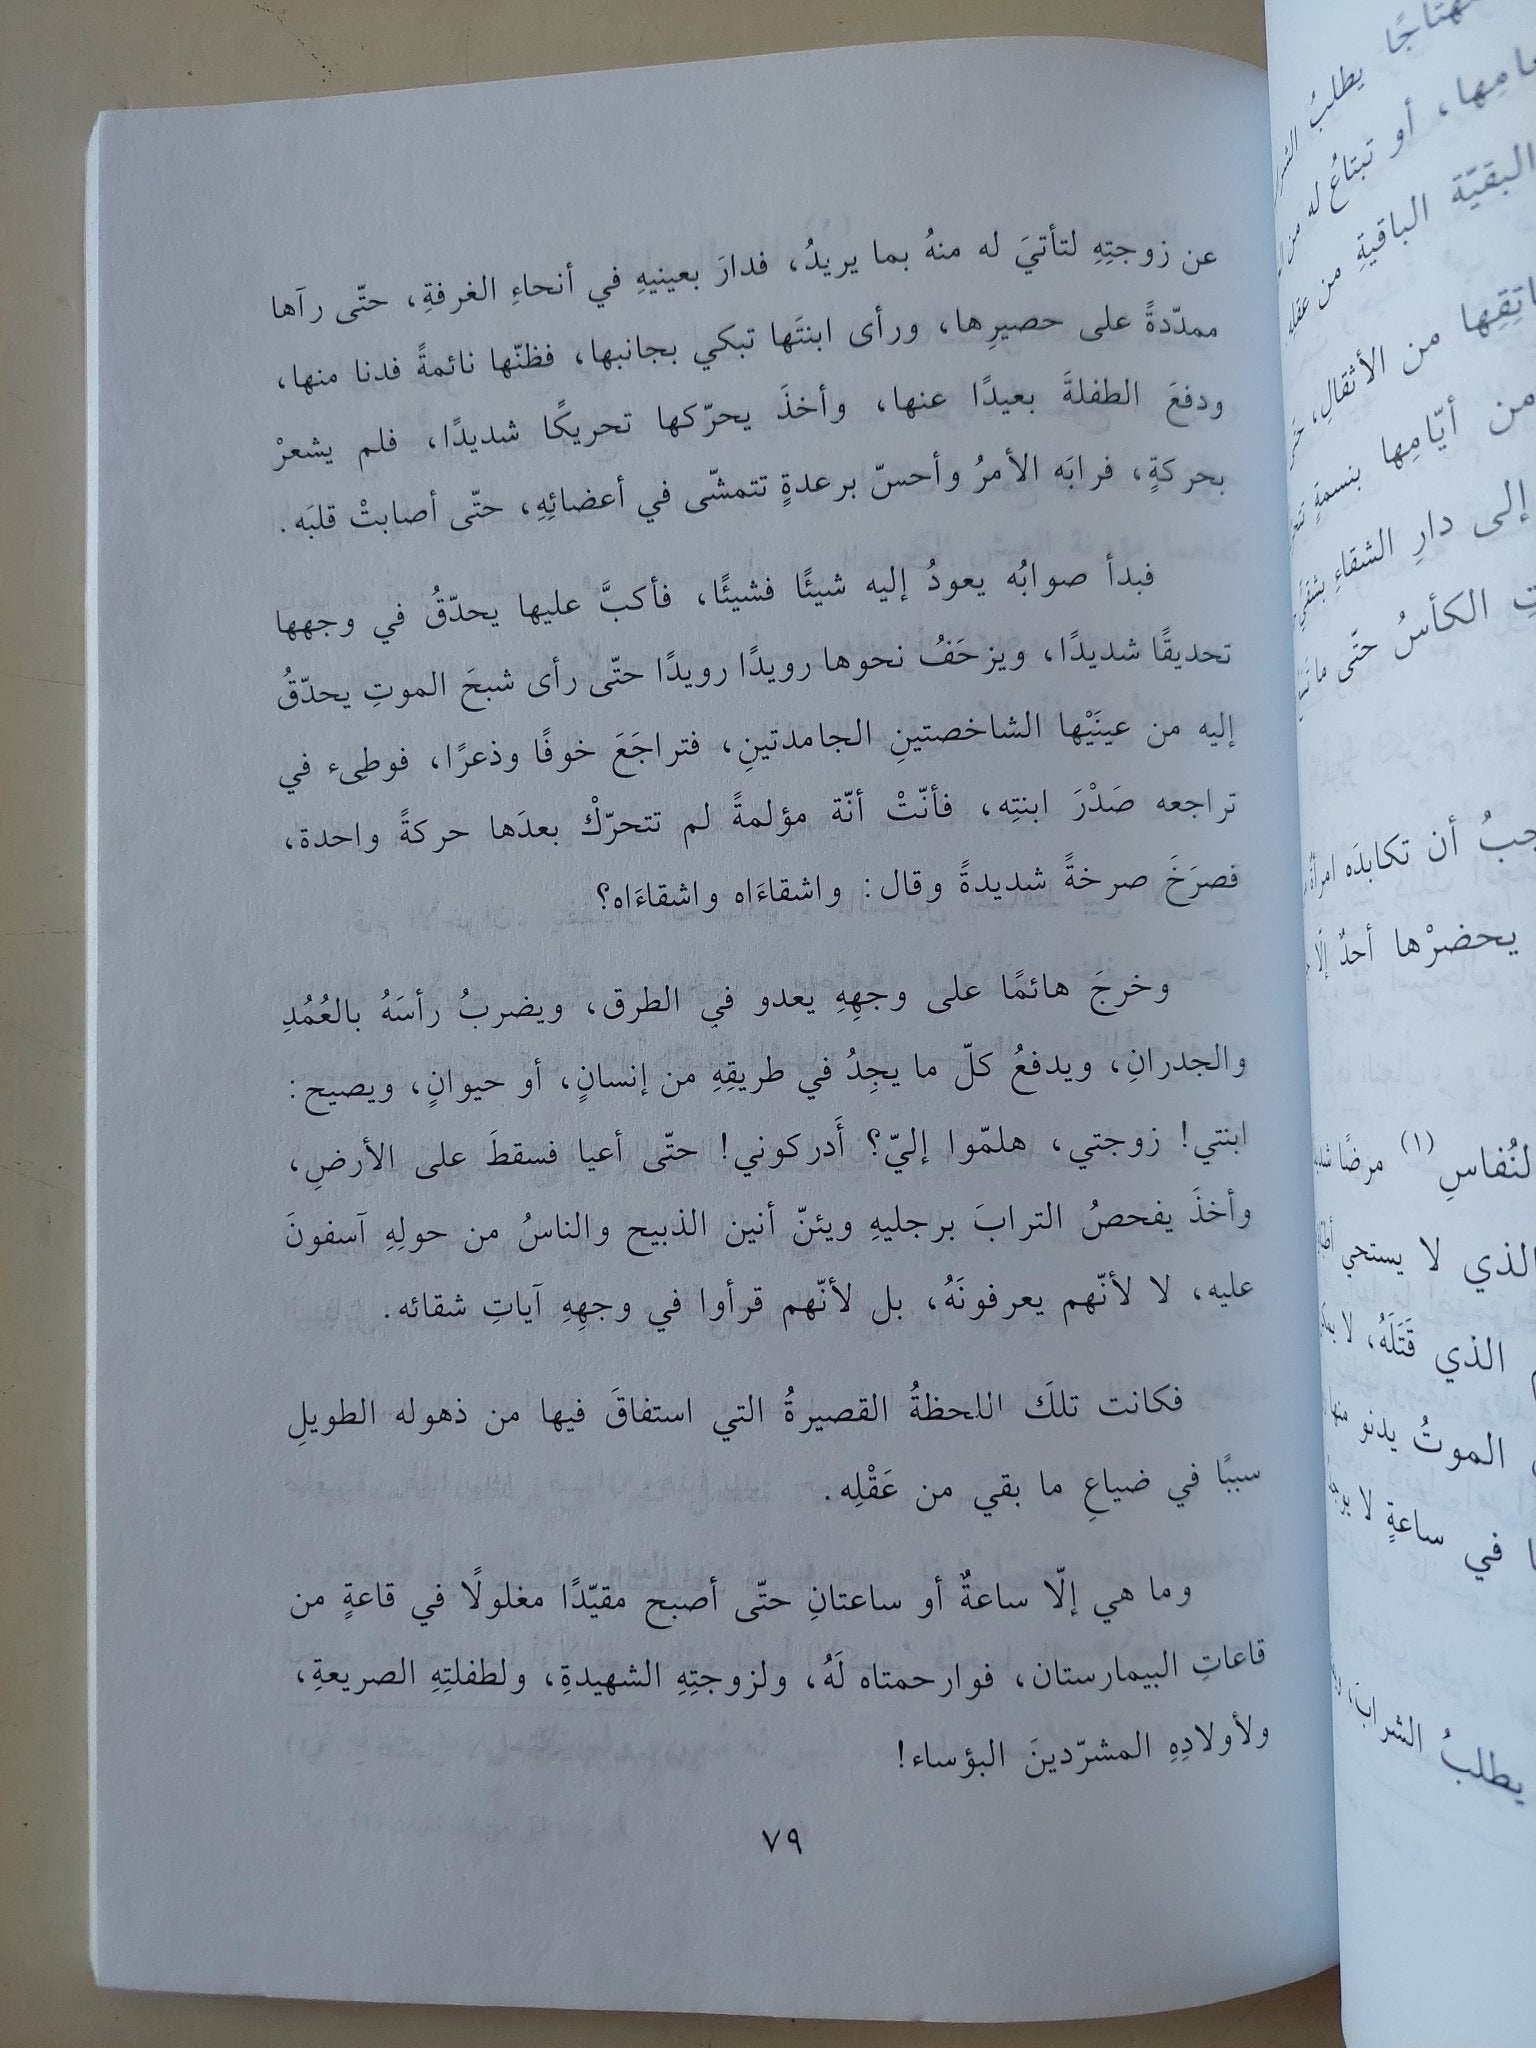 عن زوجتِهِ لتأتيَ له منهُ بما يريدُ، فدارَ بعينيهِ في أنحاءِ الغرفةِ، حتّى رآها
ممدّدةً على حصيرِها، ورأى ابنتَها تبكي بجانبها، فظنّها نائمةً فدنا منها،
ودفعَ الطفلةَ بعيدًا عنها، وأخذَ يحرّكها تحريكًا شديدًا، فلم يشعرْ
بحركةٍ، فرابَه الأمرُ وأحسّ برعدةٍ تتمشّى في أعضائِهِ، حتّى أصابتْ قلبَه.
فبدأ صوابُه يعودُ إليه شيئًا فشيئًا، فأكبَّ عليها يحدّقُ في وجهها
تحديقًا شديدًا، ويزحَفُ نحوها رويدًا رويدًا حتّى رأى شبحَ الموتِ يحدّقُ
إليه من عينَيْها الشاخصتينِ الجامدتينِ، فتراجَعَ خوفًا وذعرًا، فوطىء في
تراجعه صَدْرَ ابنتِه، فأنّتْ أنّة مؤلمةً لم تتحرّكْ بعدَها حركةً واحدة،
فصرَخَ صرخةً شديدةً وقال: واشقاءَاه واشقاءَاه؟
وخرجَ هائمًا على وجهِهِ يعدو في الطرق، ويضربُ رأسَهُ بالعُمُدِ
والجدرانِ، ويدفعُ كلّ ما يجِدُ في طريقِهِ من إنسانٍ، أو حيوانٍ، ويصيح:
ابنتي! زوجتي، هلمّوا إليّ؟ أَدركوني! حتّى أعيا فسقطَ على الأرضِ،
وأخذَ يفحصُ الترابَ برجليهِ ويئنّ أنين الذبيح والناسُ من حولِهِ آسفونَ
عليه، لا لأنّهم يعرفونَهُ، بل لأنّهم قرأوا في وجهِهِ آياتِ شقائه.
فكانت تلكَ اللحظةُ القصيرةُ التي استفاقَ فيها من ذهوله الطويلِ
سببًا في ضياعِ ما بقي من عَقْلِه.
وما هي إلّا ساعةٌ أو ساعتانِ حتّى أصبح مقيّدًا مغلولًا في قاعةٍ من
قاعاتِ البيمارستان، فوارحمتاه لَهُ، ولزوجتِهِ الشهيدةِ، ولطفلتِهِ الصريعةِ،
ولأولادِهِ المشرّدينَ البؤساء!
٧٩
يطلبُ
أو تبتاعُ له من
البقيّة الباقيةِ من
من الأثقالِ،
من أيّامِها بنسمةٍ
إلى دارِ الشقاءِ
الكأسُ حتّى ما
أن تكابدَه امرأةٌ
يحضرْها أحدٌ إلّا
(١) مرضًا
الذي لا يستحي
الذي قَتَلَهُ، لا
الموتُ يدنو منها
في ساعةٍ لا
يطلبُ الشرابَ،